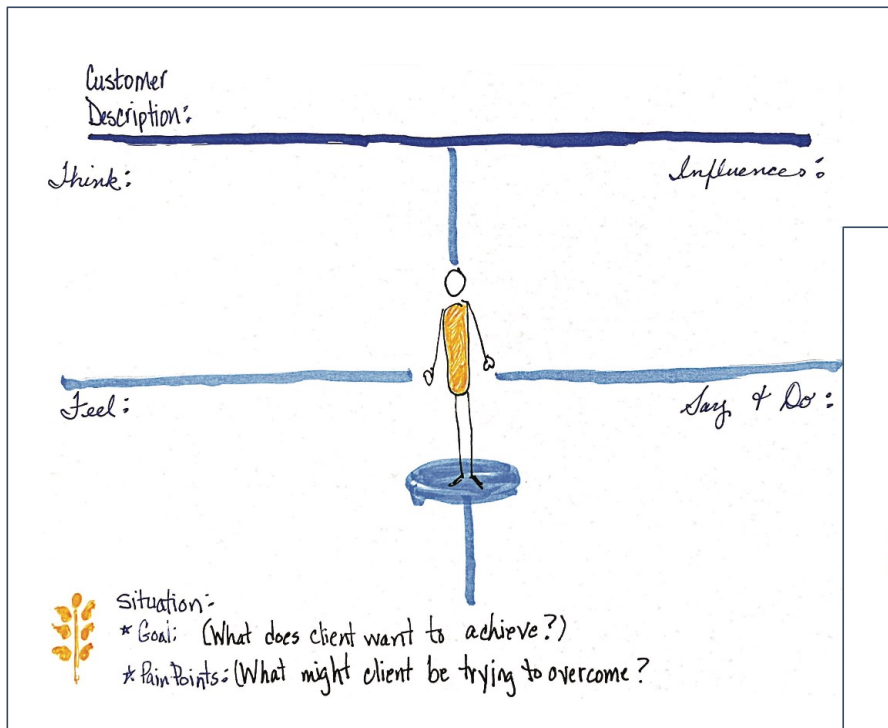 Customer
Description:
Think:
Influences:
Feel:
Say & Do:
Situation:
* Goal: (What does client want to achieve?)
* Pain Points: (What might client be trying to overcome?